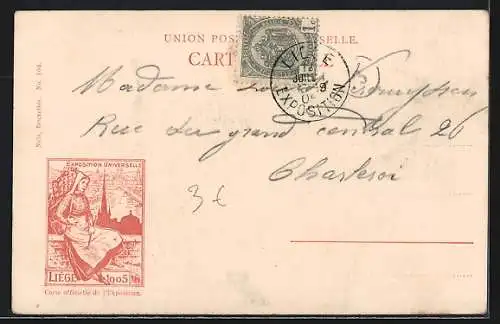 UNION POS SELLE.
CART
LIEGE
EXPOSITION
Madame
Rue du grand central 26
Charleroi
3€
Nels, Bruxelles. No. 104.
EXPOSITION UNIVERSELLE
LIÉGE 1905
Carte officielle de l'Exposition.